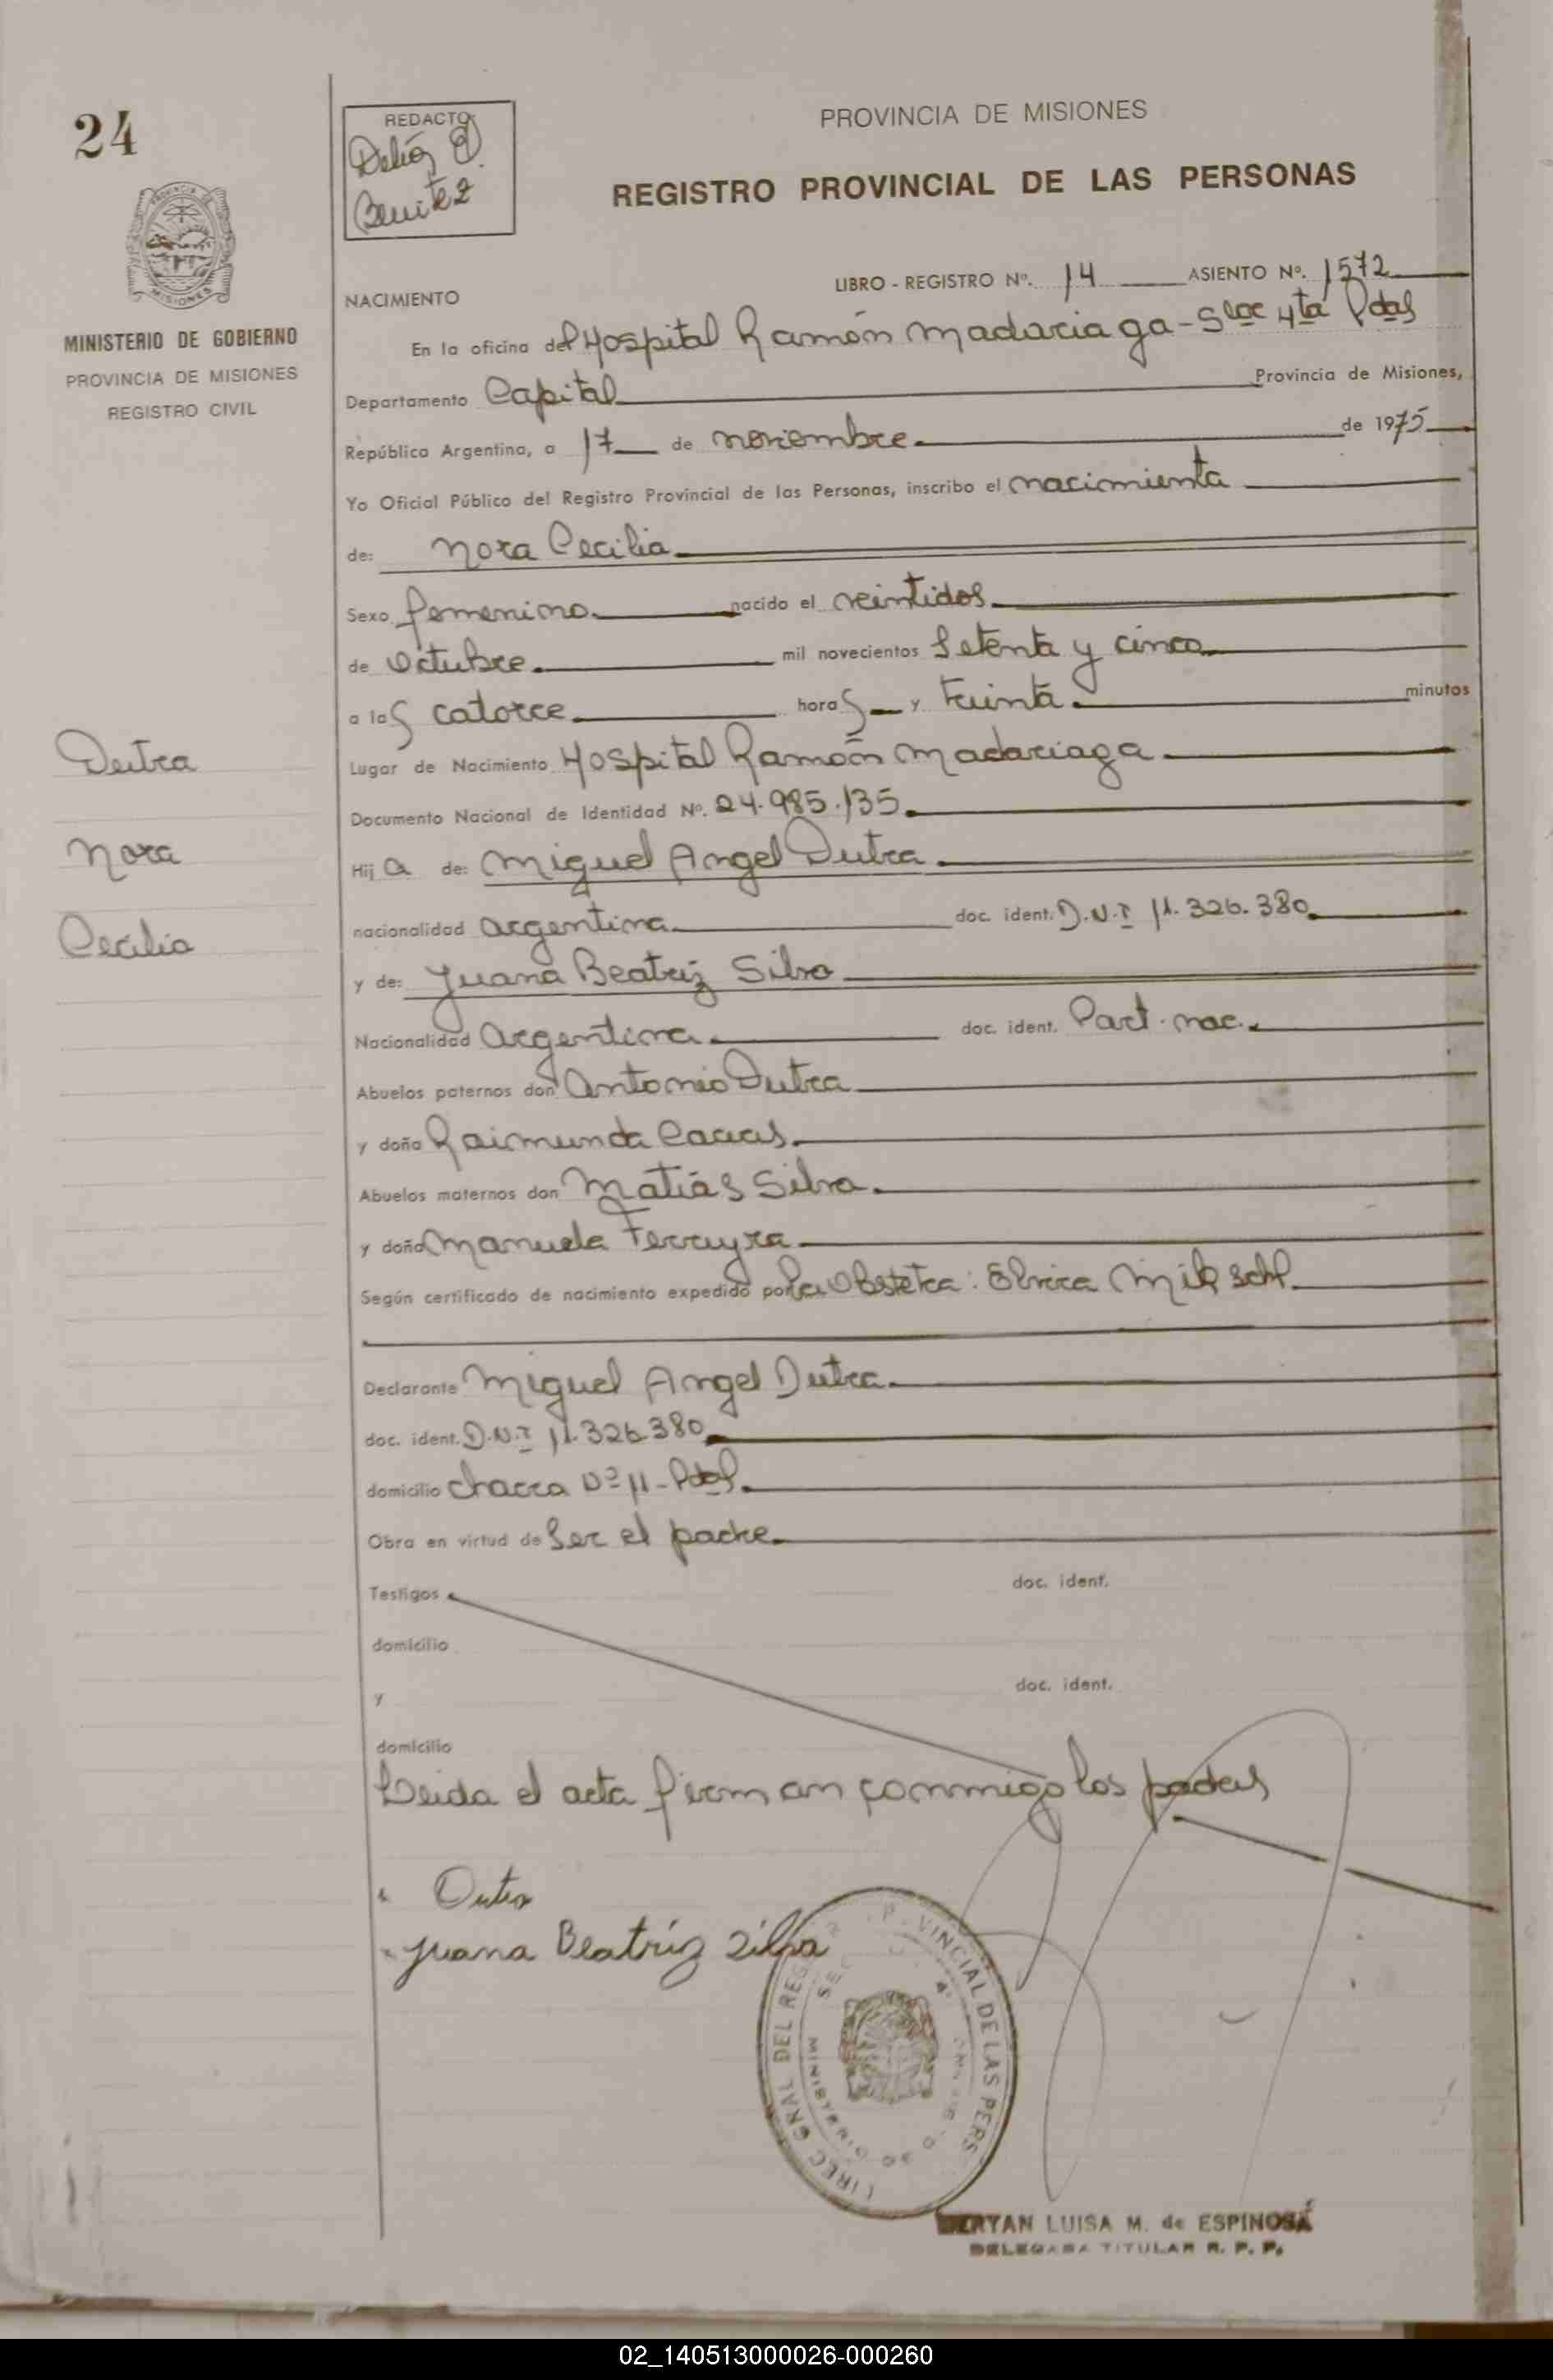 24
REDACTO
Benitez
PROVINCIA DE MISIONES
REGISTRO PROVINCIAL DE LAS PERSONAS
MISIONES
MINISTERIO DE GOBIERNO
PROVINCIA DE MISIONES
REGISTRO CIVIL
LIBRO - REGISTRO Nº. 14 ASIENTO Nº. 1572
NACIMIENTO
En la oficina del Hospital Ramón Madariaga - Sloc 4ta Pdas
Departamento Capital Provincia de Misiones,
República Argentina, a 17 de noviembre de 1975
Yo Oficial Público del Registro Provincial de las Personas, inscribo el nacimiento
de: Nora Cecilia
Sexo femenino nacido el veintidos
de octubre mil novecientos setenta y cinco
a las catorce horas y treinta minutos
Lugar de Nacimiento Hospital Ramón Madariaga
Documento Nacional de Identidad Nº. 24.985.135
Hija de: Miguel Angel Dutra
nacionalidad argentina doc. ident. D.N.I 11.326.380
y de: Juana Beatriz Silva
Nacionalidad argentina doc. ident. Part. nac.
Abuelos paternos don Antonio Dutra
y doña Raimunda
Abuelos maternos don Matias Silva
y doña Manuela Ferreyra
Según certificado de nacimiento expedido por la Obstetra: Elvira
Declarante Miguel Angel Dutra
doc. ident. D.N.I 11.326.380
domicilio chacra Nº 11 - Pdas
Obra en virtud de ser el padre
Testigos doc. ident.
domicilio
y doc. ident.
domicilio
Leida el acta firman conmigo los padres
Dutra
Juana Beatriz Silva
Dutra
Nora
Cecilia
DEL REG VINCIAL DE LAS PERS
MINISTERIO DE
LUISA M. de ESPINOSA
DELEGADA TITULAR R. P. P.
02_140513000026-000260